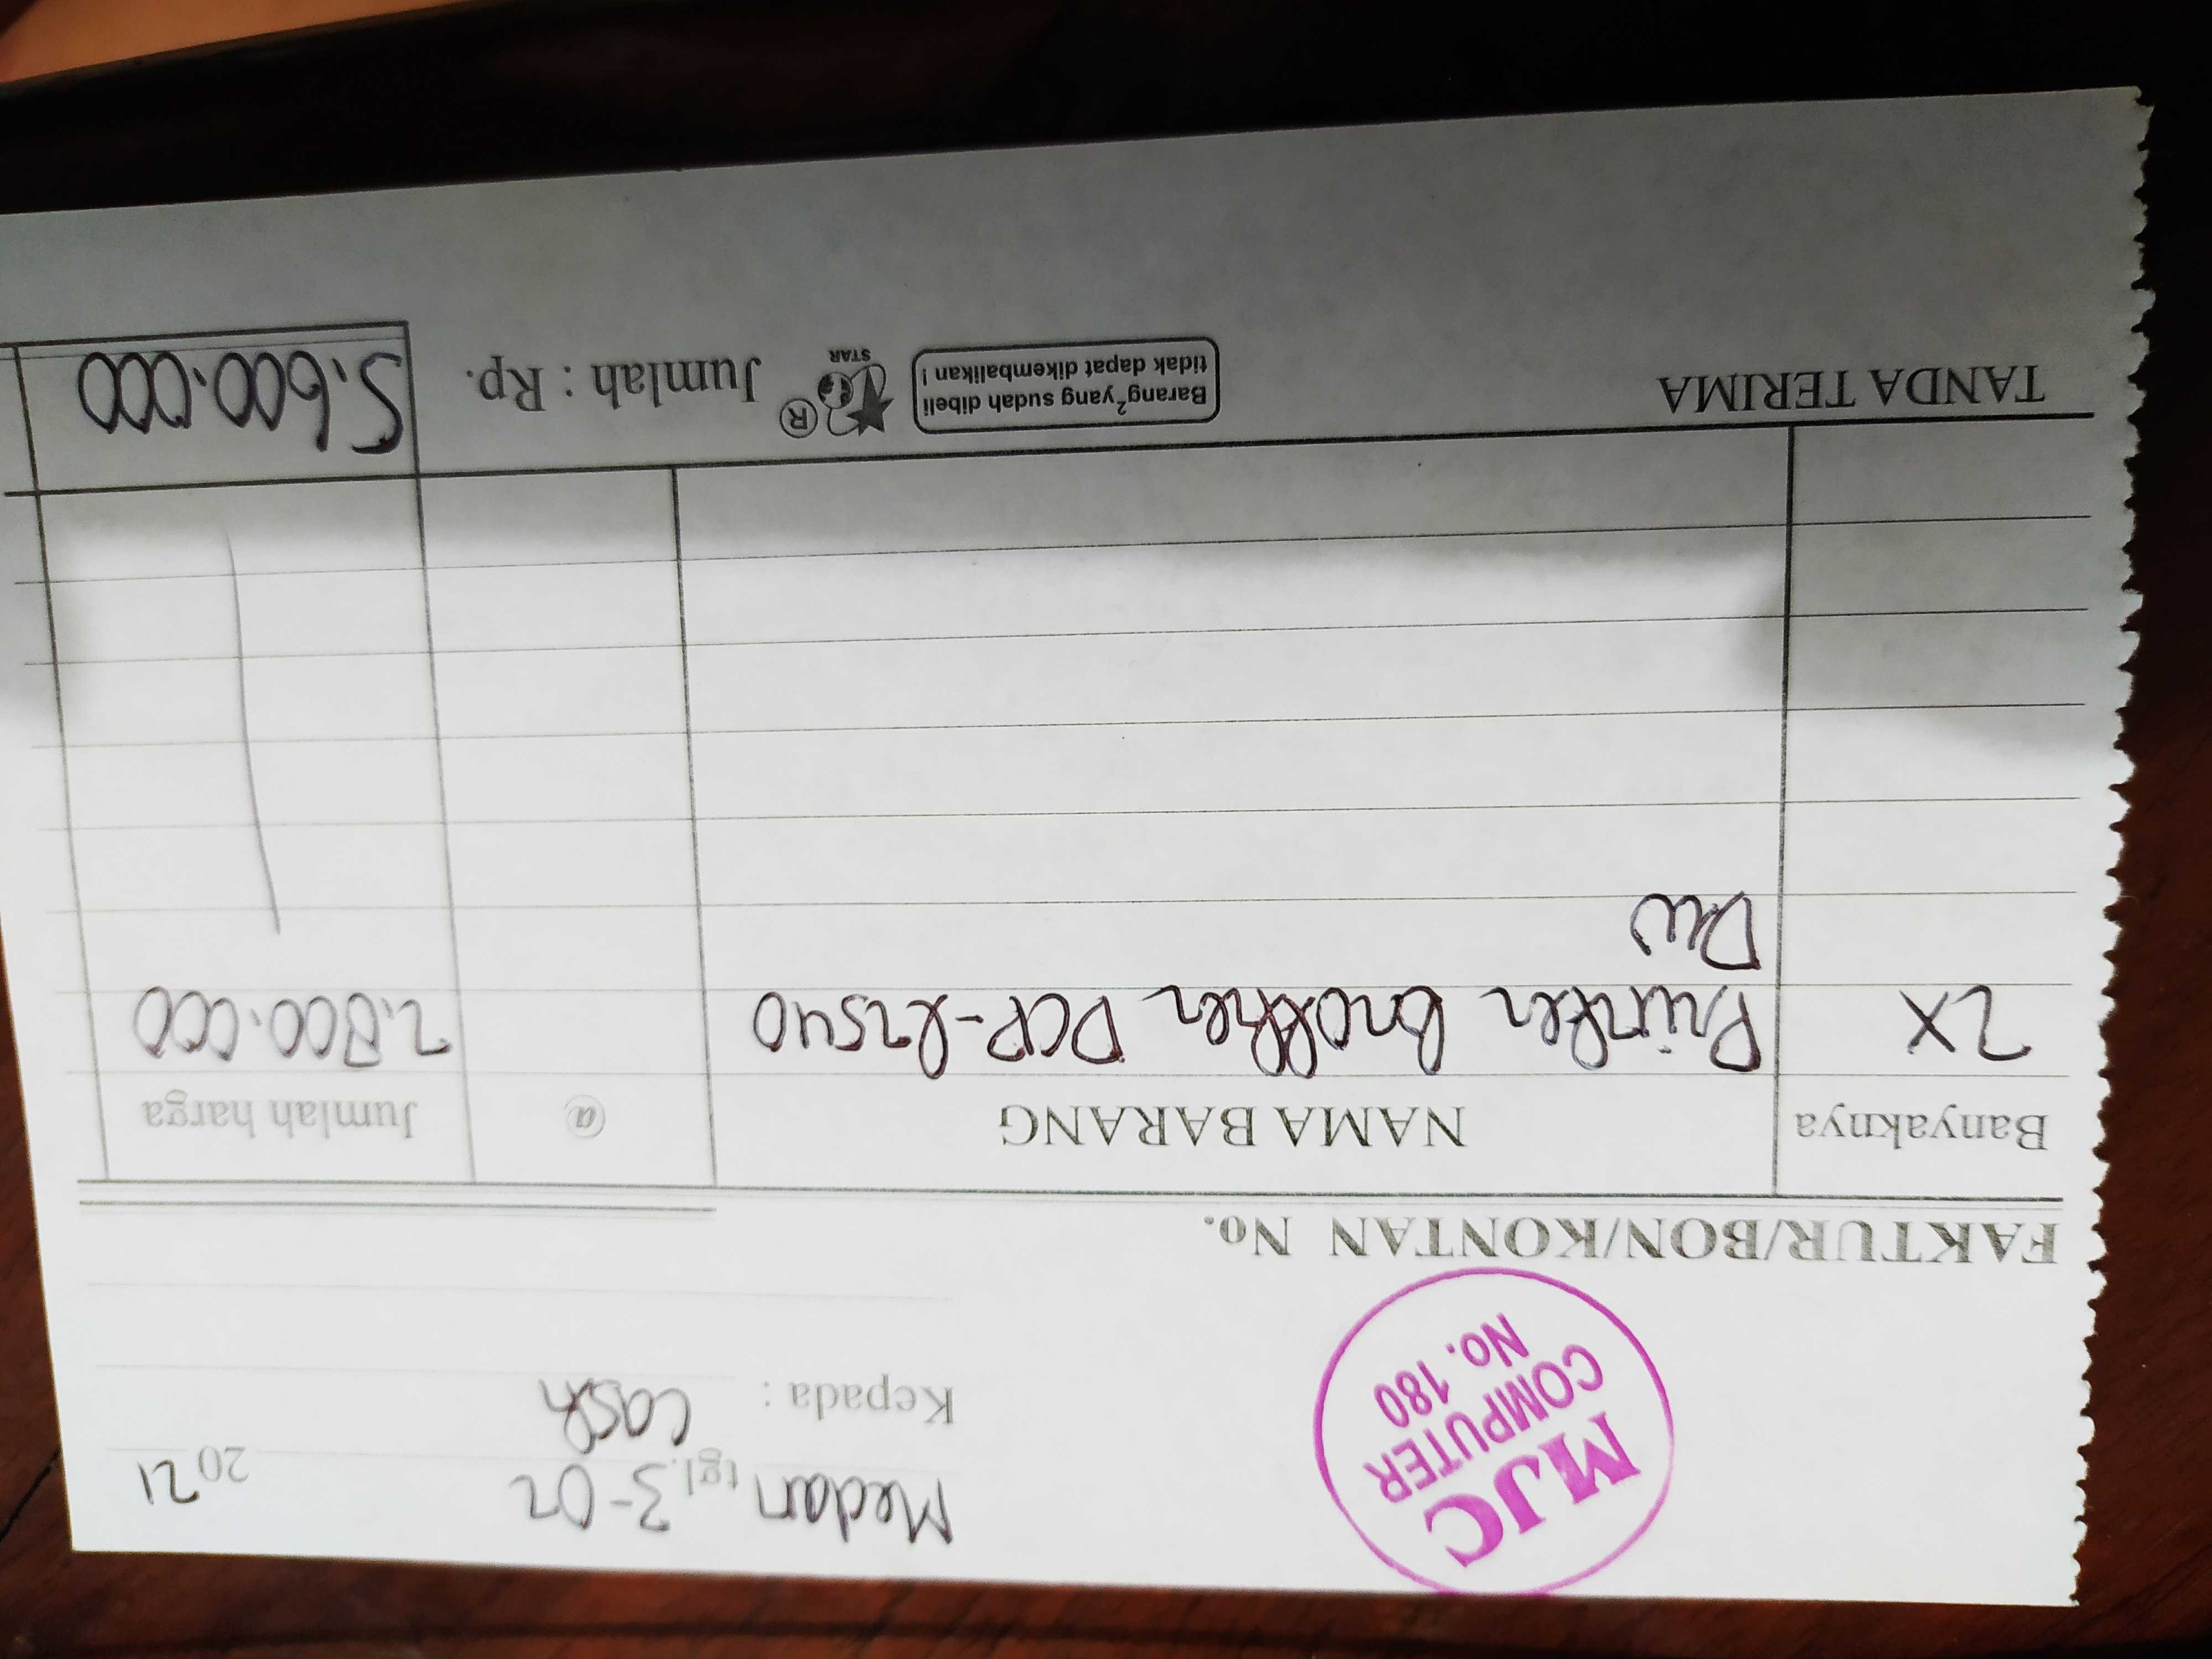 MJC
COMPUTER
No. 180
Medan tgl. 3-02 2021
Kepada : Cash
FAKTUR/BON/KONTAN No.
Banyaknya NAMA BARANG @ Jumlah harga
2X Printer Brother DCP-L2540 2.800.000
DW
TANDA TERIMA
Barang² yang sudah dibeli
tidak dapat dikembalikan !
® STAR
Jumlah : Rp. 5.600.000